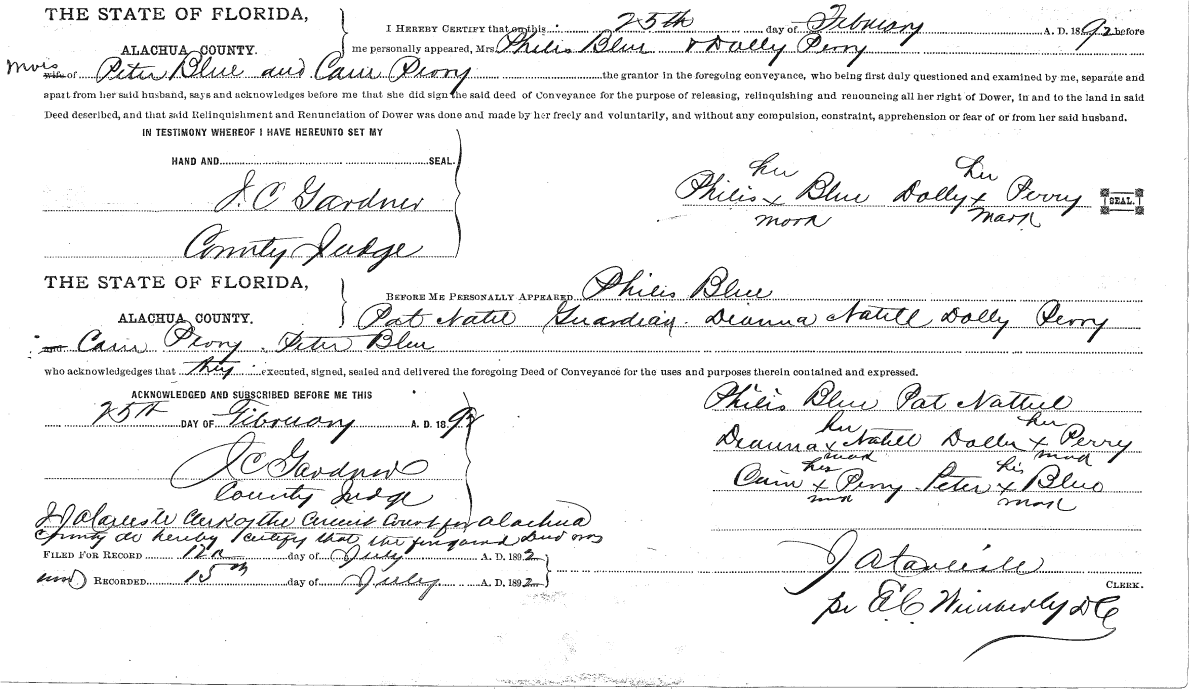 THE STATE OF FLORIDA,
ALACHUA COUNTY.
I HEREBY CERTIFY that on this 25th day of Februrary A. D. 1892 before
me personally appeared, Mrs. Philis Blue & Dolly Perry
wife of Peter Blue and Cain Perry the grantor in the foregoing conveyance, who being first duly questioned and examined by me, separate and
apart from her said husband, says and acknowledges before me that she did sign the said deed of Conveyance for the purpose of releasing, relinquishing and renouncing all her right of Dower, in and to the land in said
Deed described, and that said Relinquishment and Renunciation of Dower was done and made by her freely and voluntarily, and without any compulsion, constraint, apprehension or fear of or from her said husband.
IN TESTIMONY WHEREOF I HAVE HEREUNTO SET MY
HAND AND SEAL.
J. C Gardner
County Judge
her her
Philis x Blue Dolly x Perry SEAL.
mark mark
THE STATE OF FLORIDA,
ALACHUA COUNTY.
BEFORE ME PERSONALLY APPEARED Philis Blue
Pat Natil Guardian Deanna Natill Dolly Perry
Cain Perry Peter Blue
who acknowledgedges that they executed, signed, sealed and delivered the foregoing Deed of Conveyance for the uses and purposes therein contained and expressed.
ACKNOWLEDGED AND SUBSCRIBED BEFORE ME THIS
25th DAY OF February A. D. 1892
J C Gardner
County Judge
Philis Blue Pat Nattiel
her her
Deanna x Natill Dolly x Perry
mark mark
his his
Cain x Perry Peter x Blue
mark mark
J A Carlisle Clerk of the Circuit Court for Alachua
County do hereby certify that the foregoing Deed was
FILED FOR RECORD 12th day of July A. D. 1892
and RECORDED 15th day of July A. D. 1892
J A Carlisle
CLERK.
pr E. C. Wimberly D C